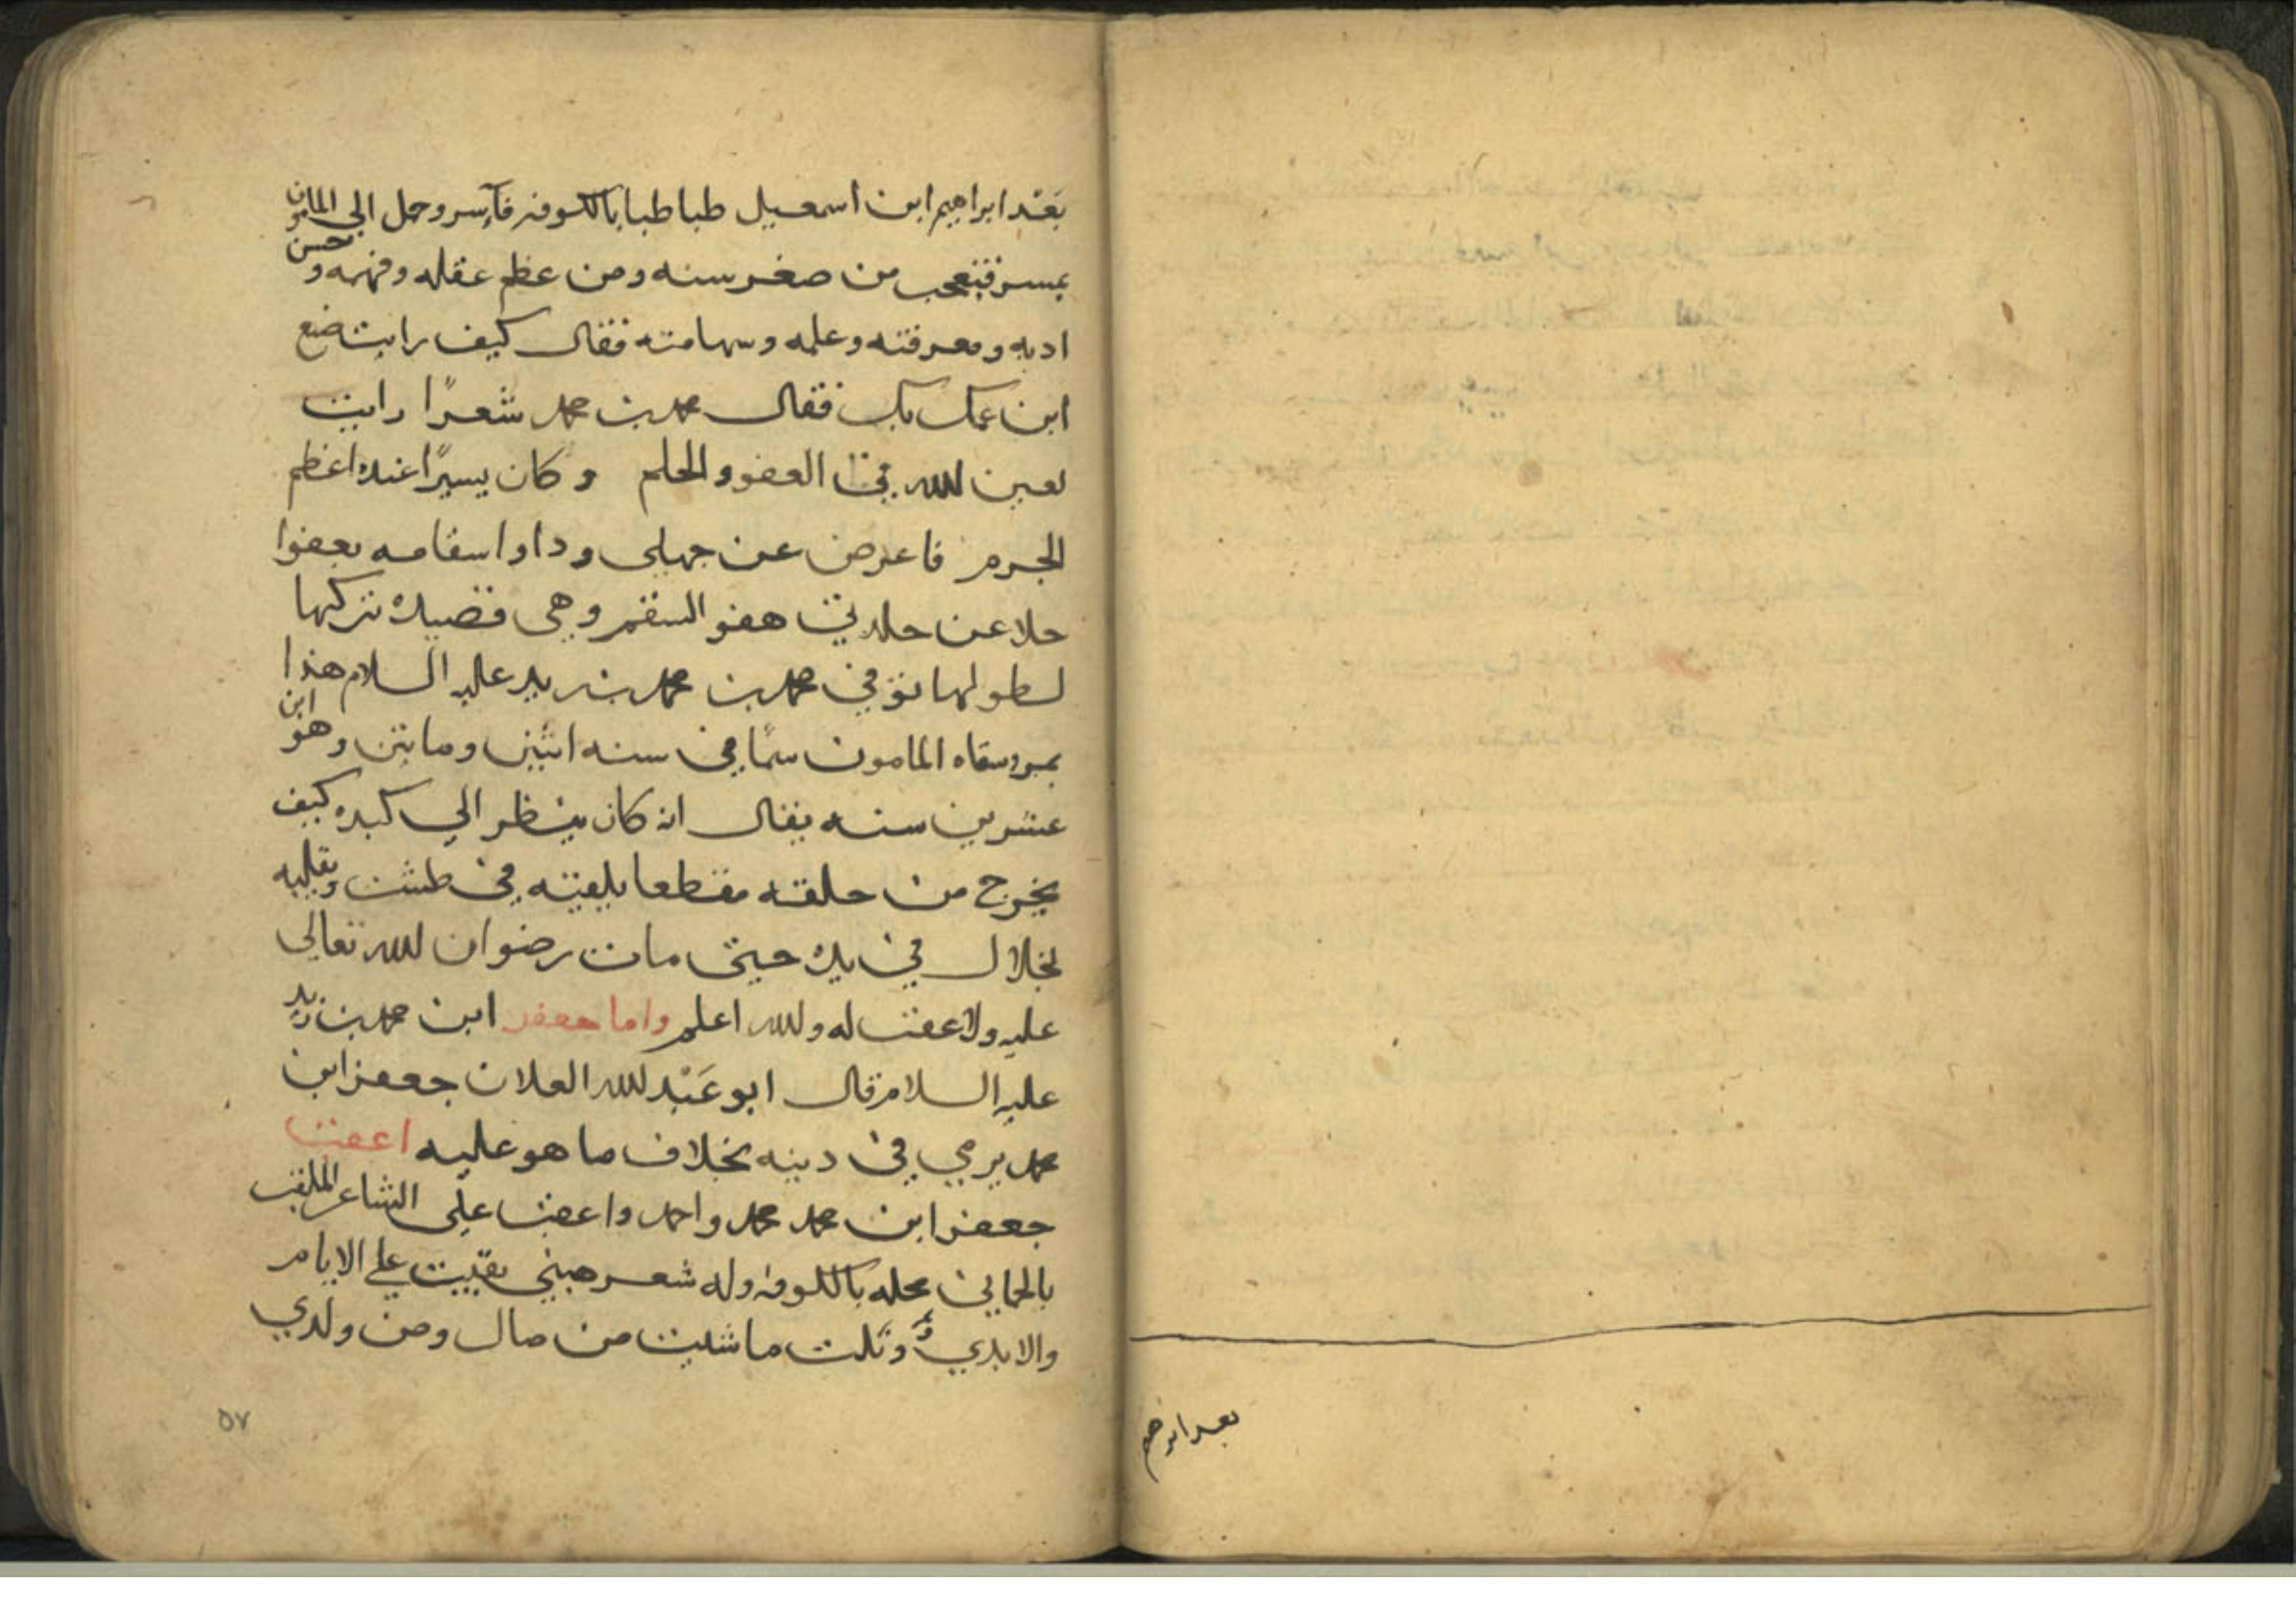 بعد ابرهيم
بَعْد ابراهيم ابن اسمعيل طباطبا بالكوفه فآسر وحمل الى المامون
بمسرو فتعجب من صغر سنه ومن عظم عقله وفهمه وحسن
ادبه ومعرفته وعلمه وسهامته فقال كيف رايت صنع
ابن عمك بك فقال محمد بن محمد شعرًا رايت
لعين الله في العفو والحلم و كان يسيرًا عنده اعظم
الجرم فاعرض عن جهلي وداوا سقامه بعفوا
جلا عن جلدتي هفو السقم وهي قصيده تركها
لطولها توفي محمد بن محمد بن زيد عليه السلام هذا
بمرو سقاه المامون سمًا في سنه اثنين ومايتن وهو ابن
عشرين سنه يقال انه كان ينظر الي كبده كيف
يخرج من حلقه مقطعا يلقيه في طشت ويقلبه
بخلال في يده حيتى مات رضوان الله تعالى
عليه ولا عقب له والله اعلم واما جعفر ابن محمد بن زيد
عليه السلام قال ابو عَبْد الله العلان جعفر ابن
محمد يرمي في دينه بخلاف ما هو عليه اعقب
جعفر ابن محمد محمد واحمد واعقب على الشاعر الملقب
بالحماني محله بالكوفه وله شعر هبني بقيت علي الايام
والابدي ونلت ما شيت من مال ومن ولدي
٥٧